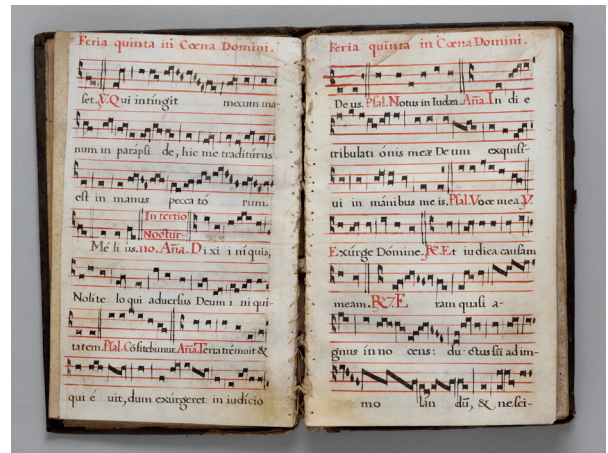 Feria quinta in Cœna Domini.
set. ℣. Qui intíngit mecum ma-
num in parápsi de, hic me traditúrus
est in manus pecca tó rum.
In tertio
Mé li us. Noctur-
no. Aña. D i xi i ní quis,
Nolíte lo qui adversus Deum i ni qui-
tatem. Psal. Aña. Terra tremuit &
qui é uit, dum exúrgeret in iudício
Feria quinta in Cœna Domini.
De us. Psal. Notus in Iudæa. Aña. In di e
tribulati ónis meæ De um exquisí-
ui in mánibus me is. Psal. Voce mea. ℣.
Exúrge Dómine. ℟. Et iudica causam
meam. ℟. 7. E ram quasi a-
gnus in no cens: du ctus sũ ad im-
mo lán dũ, & nesci-